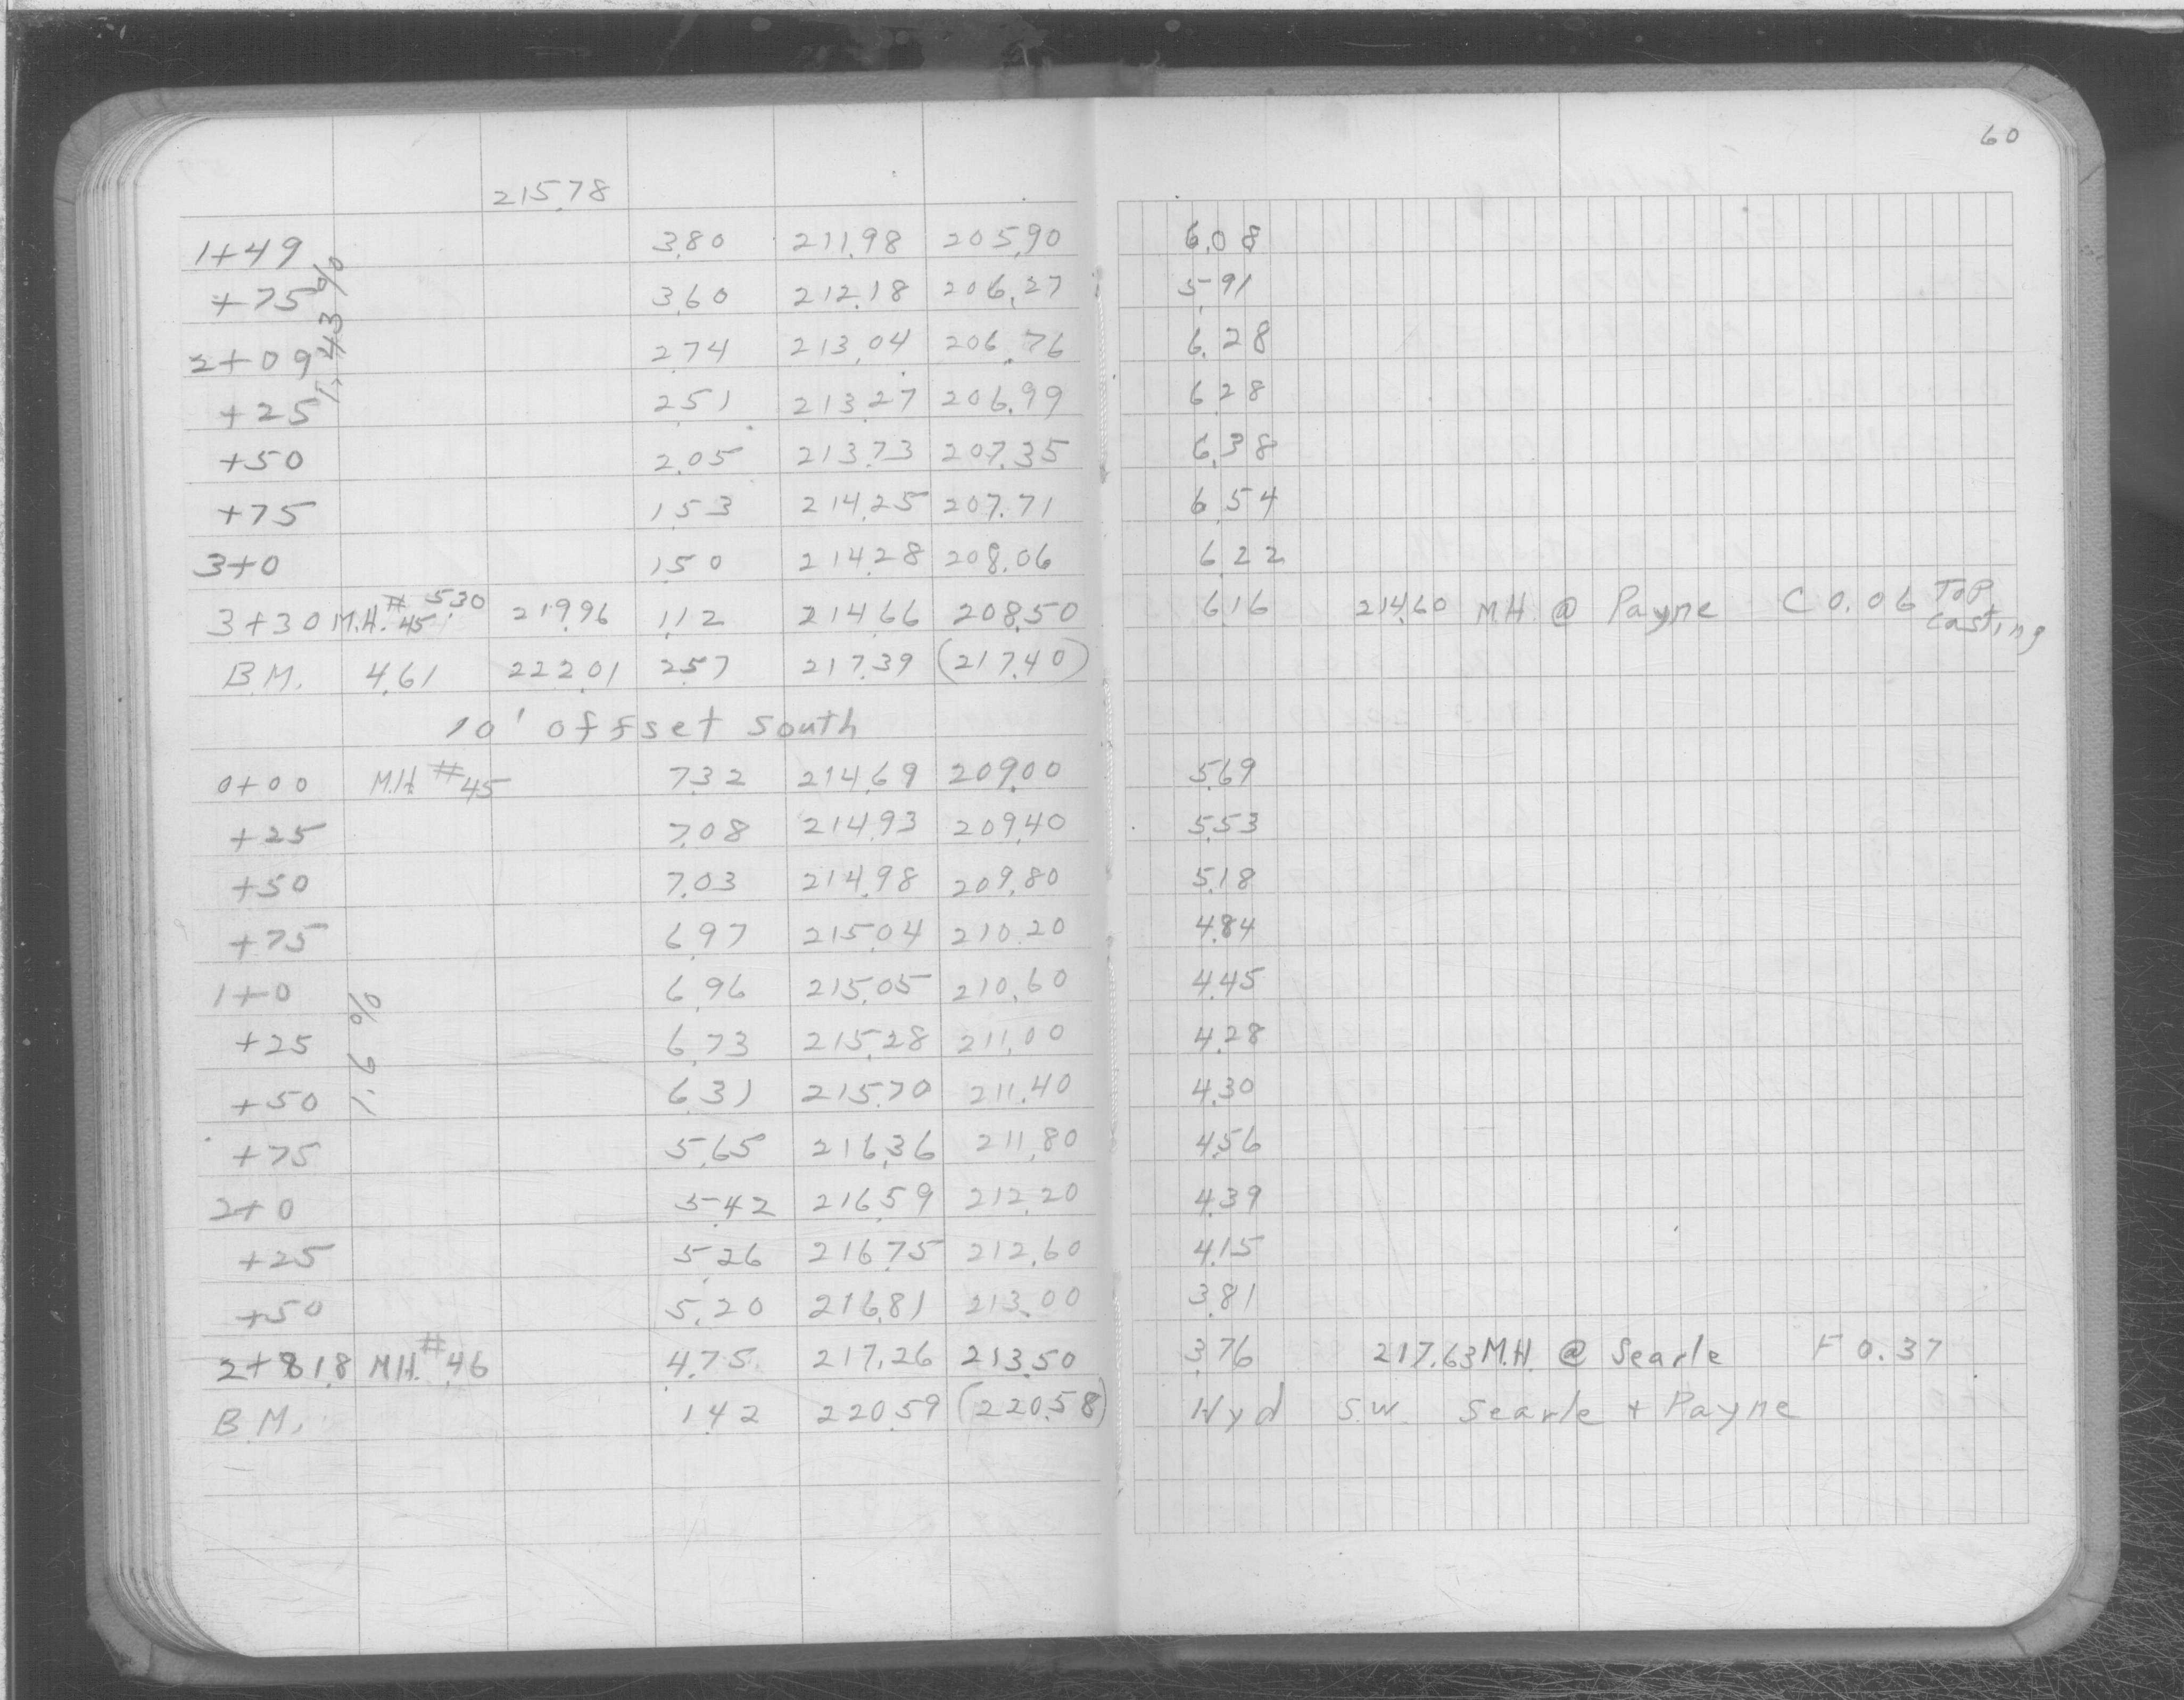 60
215.78
1+49 3.80 211.98 205.90 6.08
+75 3.60 212.18 206.27 5.91
1.43%
2+09 2.74 213.04 206.76 6.28
+25 2.51 213.27 206.99 6.28
+50 2.05 213.73 207.35 6.38
+75 1.53 214.25 207.71 6.54
3+0 1.50 214.28 208.06 6.22
3+30 M.H. #45 5.30 219.96 1.12 214.66 208.50 6.16 214.60 M.H. @ Payne C 0.06 Top Casting
B.M. 4.61 222.01 2.57 217.39 (217.40)
10' offset South
0+00 M.H. #45 7.32 214.69 209.00 5.69
+25 7.08 214.93 209.40 5.53
+50 7.03 214.98 209.80 5.18
+75 6.97 215.04 210.20 4.84
1+0 6.96 215.05 210.60 4.45
1.6%
+25 6.73 215.28 211.00 4.28
+50 6.31 215.70 211.40 4.30
+75 5.65 216.36 211.80 4.56
2+0 5.42 216.59 212.20 4.39
+25 5.26 216.75 212.60 4.15
+50 5.20 216.81 213.00 3.81
2+81.8 M.H. #46 4.75 217.26 213.50 3.76 217.63 M.H. @ Searle F 0.37
B.M. 1.42 220.59 (220.58) Hyd S.W. Searle + Payne